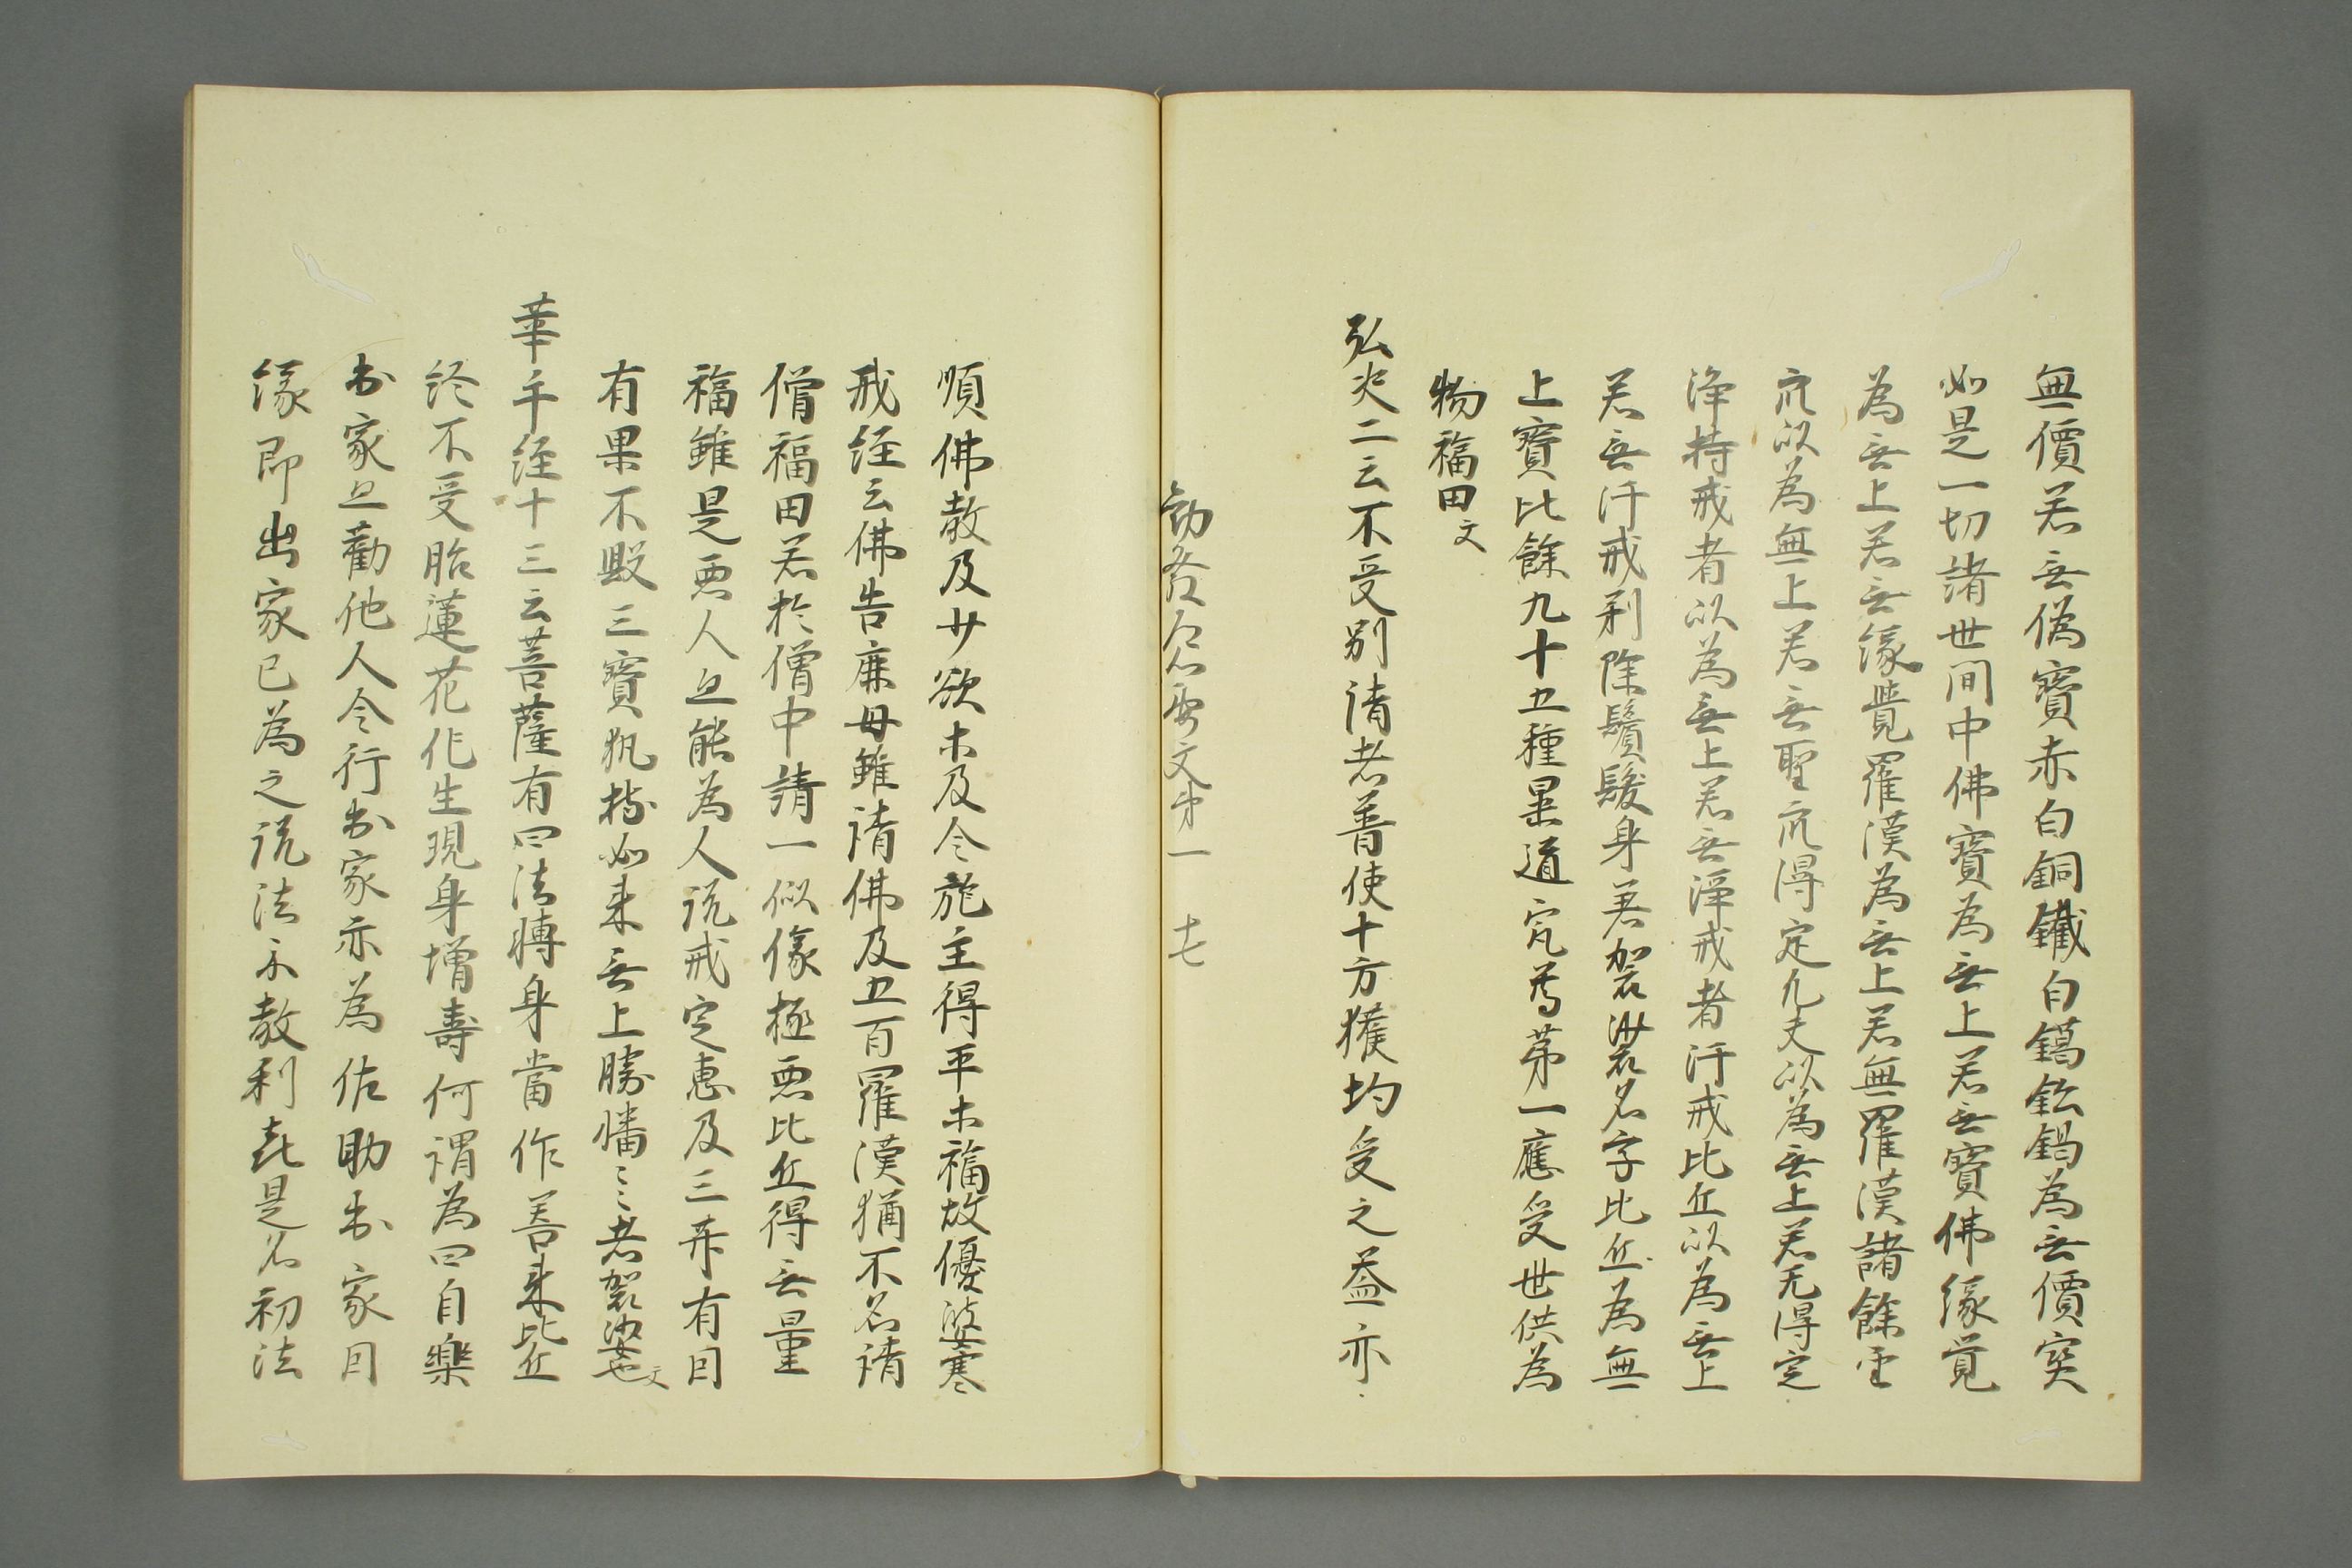 無價若无偽寶赤白銅鐵白鑞鈆錫為无價寶
如是一切諸世间中佛寶為无上若无寶佛緣覺
為无上若无緣覺羅漢為无上若無羅漢諸餘聖
衆以為無上若无聖衆得定凡夫以為无上若无得定
淨持戒者以為无上若无淨戒者汙戒比丘以為无上
若无汙戒剃除鬚髮身著袈裟名字比丘為無
上寶比餘九十五種異道衆尊苐一應受世供為
物福田文
弘决二云不受別請者善使十方獲均受之益亦
勧發𫝹要文苐一 十七
順佛教及少欲木及令施主得平木福故優婆塞
戒経云佛告鹿母雖請佛及五百羅漢猶不名請
僧福田若於僧中請一似像極悪比丘得无量
福雖是悪人且能為人説戒定恵及三井有因
有果不毀三寶執持如来无上勝幡〻〻者袈裟也文
華手経十三云菩薩有四法轉身當作善来比丘
終不受胎蓮花化生現身増壽何謂為四自樂
出家且勸他人令行出家示為佐助出家因
緣即出家已為之説法示教利㐂是名初法